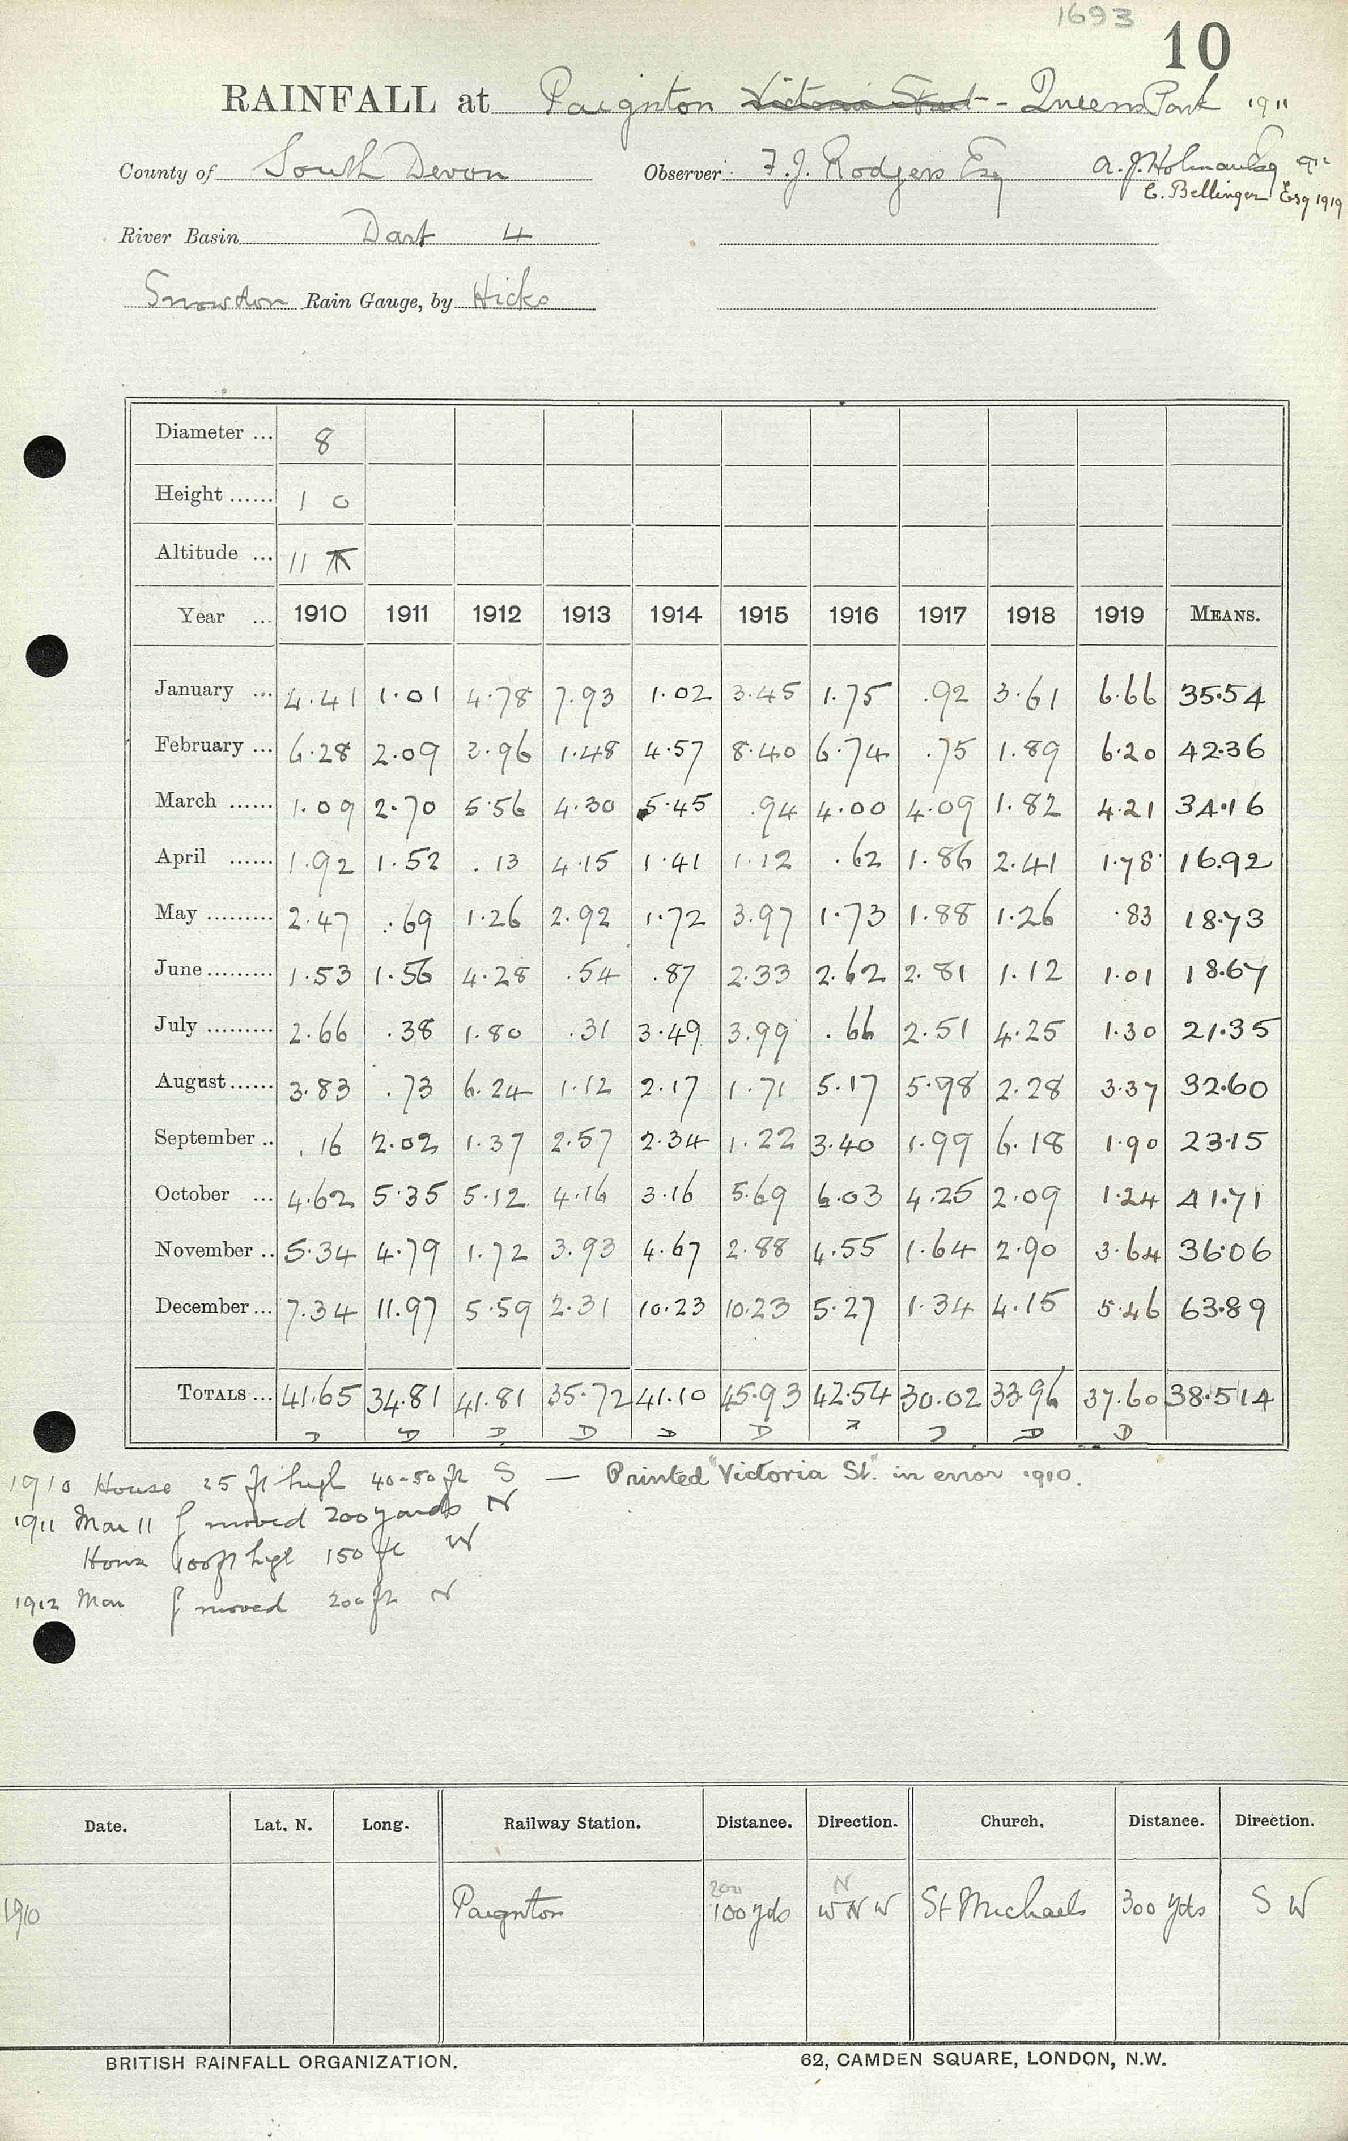 1693
10
RAINFALL at Paignton Victoria Street - Queens Park 1911
County of South Devon Observer F. J. Rodgers Esq A. J. Holman Esq
C. Bellinger Esq 1919
River Basin Dart 4
Snowdon Rain Gauge, by Hicks
Diameter ... 8
Height ...... 1 0
Altitude ... 11
Year ... 1910 1911 1912 1913 1914 1915 1916 1917 1918 1919 MEANS.
January ... 4.41 1.01 4.78 7.93 1.02 3.45 1.75 .92 3.61 6.66 35.54
February ... 6.28 2.09 3.96 1.48 4.57 8.40 6.74 .75 1.89 6.20 42.36
March ...... 1.09 2.70 5.56 4.30 5.45 .94 4.00 4.09 1.82 4.21 34.16
April ...... 1.92 1.52 .13 4.15 1.41 1.12 .62 1.86 2.41 1.78 16.92
May ......... 2.47 .69 1.26 2.92 1.72 3.97 1.73 1.88 1.26 .83 18.73
June ......... 1.53 1.56 4.28 .54 .87 2.33 2.62 2.81 1.12 1.01 18.67
July ......... 2.66 .38 1.80 .31 3.49 3.99 .66 2.51 4.25 1.30 21.35
August ...... 3.83 .73 6.24 1.12 2.17 1.71 5.17 5.98 2.28 3.37 32.60
September .. .16 2.02 1.37 2.57 2.34 1.22 3.40 1.99 6.18 1.90 23.15
October ... 4.62 5.35 5.12 4.16 3.16 5.69 6.03 4.25 2.09 1.24 41.71
November .. 5.34 4.79 1.72 3.93 4.67 2.88 4.55 1.64 2.90 3.64 36.06
December ... 7.34 11.97 5.59 2.31 10.23 10.23 5.27 1.34 4.15 5.46 63.89
TOTALS ... 41.65 34.81 41.81 35.72 41.10 45.93 42.54 30.02 33.96 37.60 38.514
D D D D D D D D D
1910 House 25 ft high 40-50 ft S — Printed "Victoria St." in error 1910.
1911 Mar 11 g moved 200 yards N
House 100 ft high 150 ft W
1912 Mar g moved 200 ft N
Date. Lat. N. Long. Railway Station. Distance. Direction. Church. Distance. Direction.
200 N
1910 Paignton 100 yds WNW St Michaels 300 yds S W
BRITISH RAINFALL ORGANIZATION. 62, CAMDEN SQUARE, LONDON, N.W.